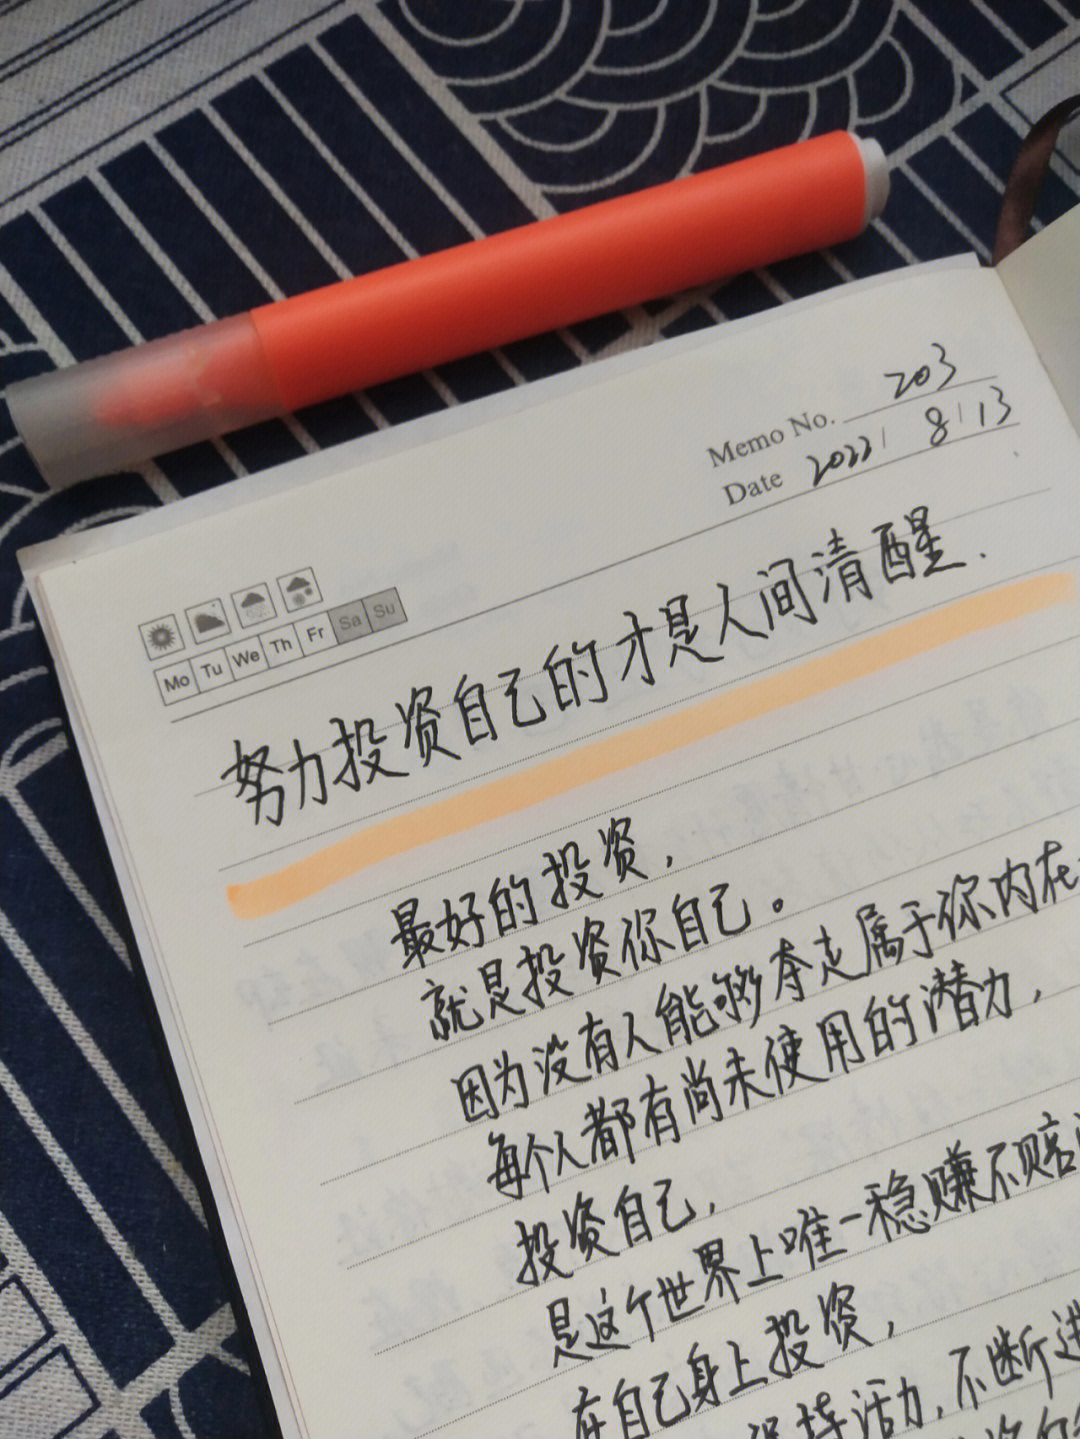 Memo No. 203
Date 2022/ 8/13
Mo Tu We Th Fr Sa Su
努力投资自己的才是人间清醒.
最好的投资,
就是投资你自己。
因为没有人能够夺走属于你内在
每个人都有尚未使用的潜力,
投资自己,
是这个世界上唯一稳赚不赔
在自己身上投资,
保持活力,不断进